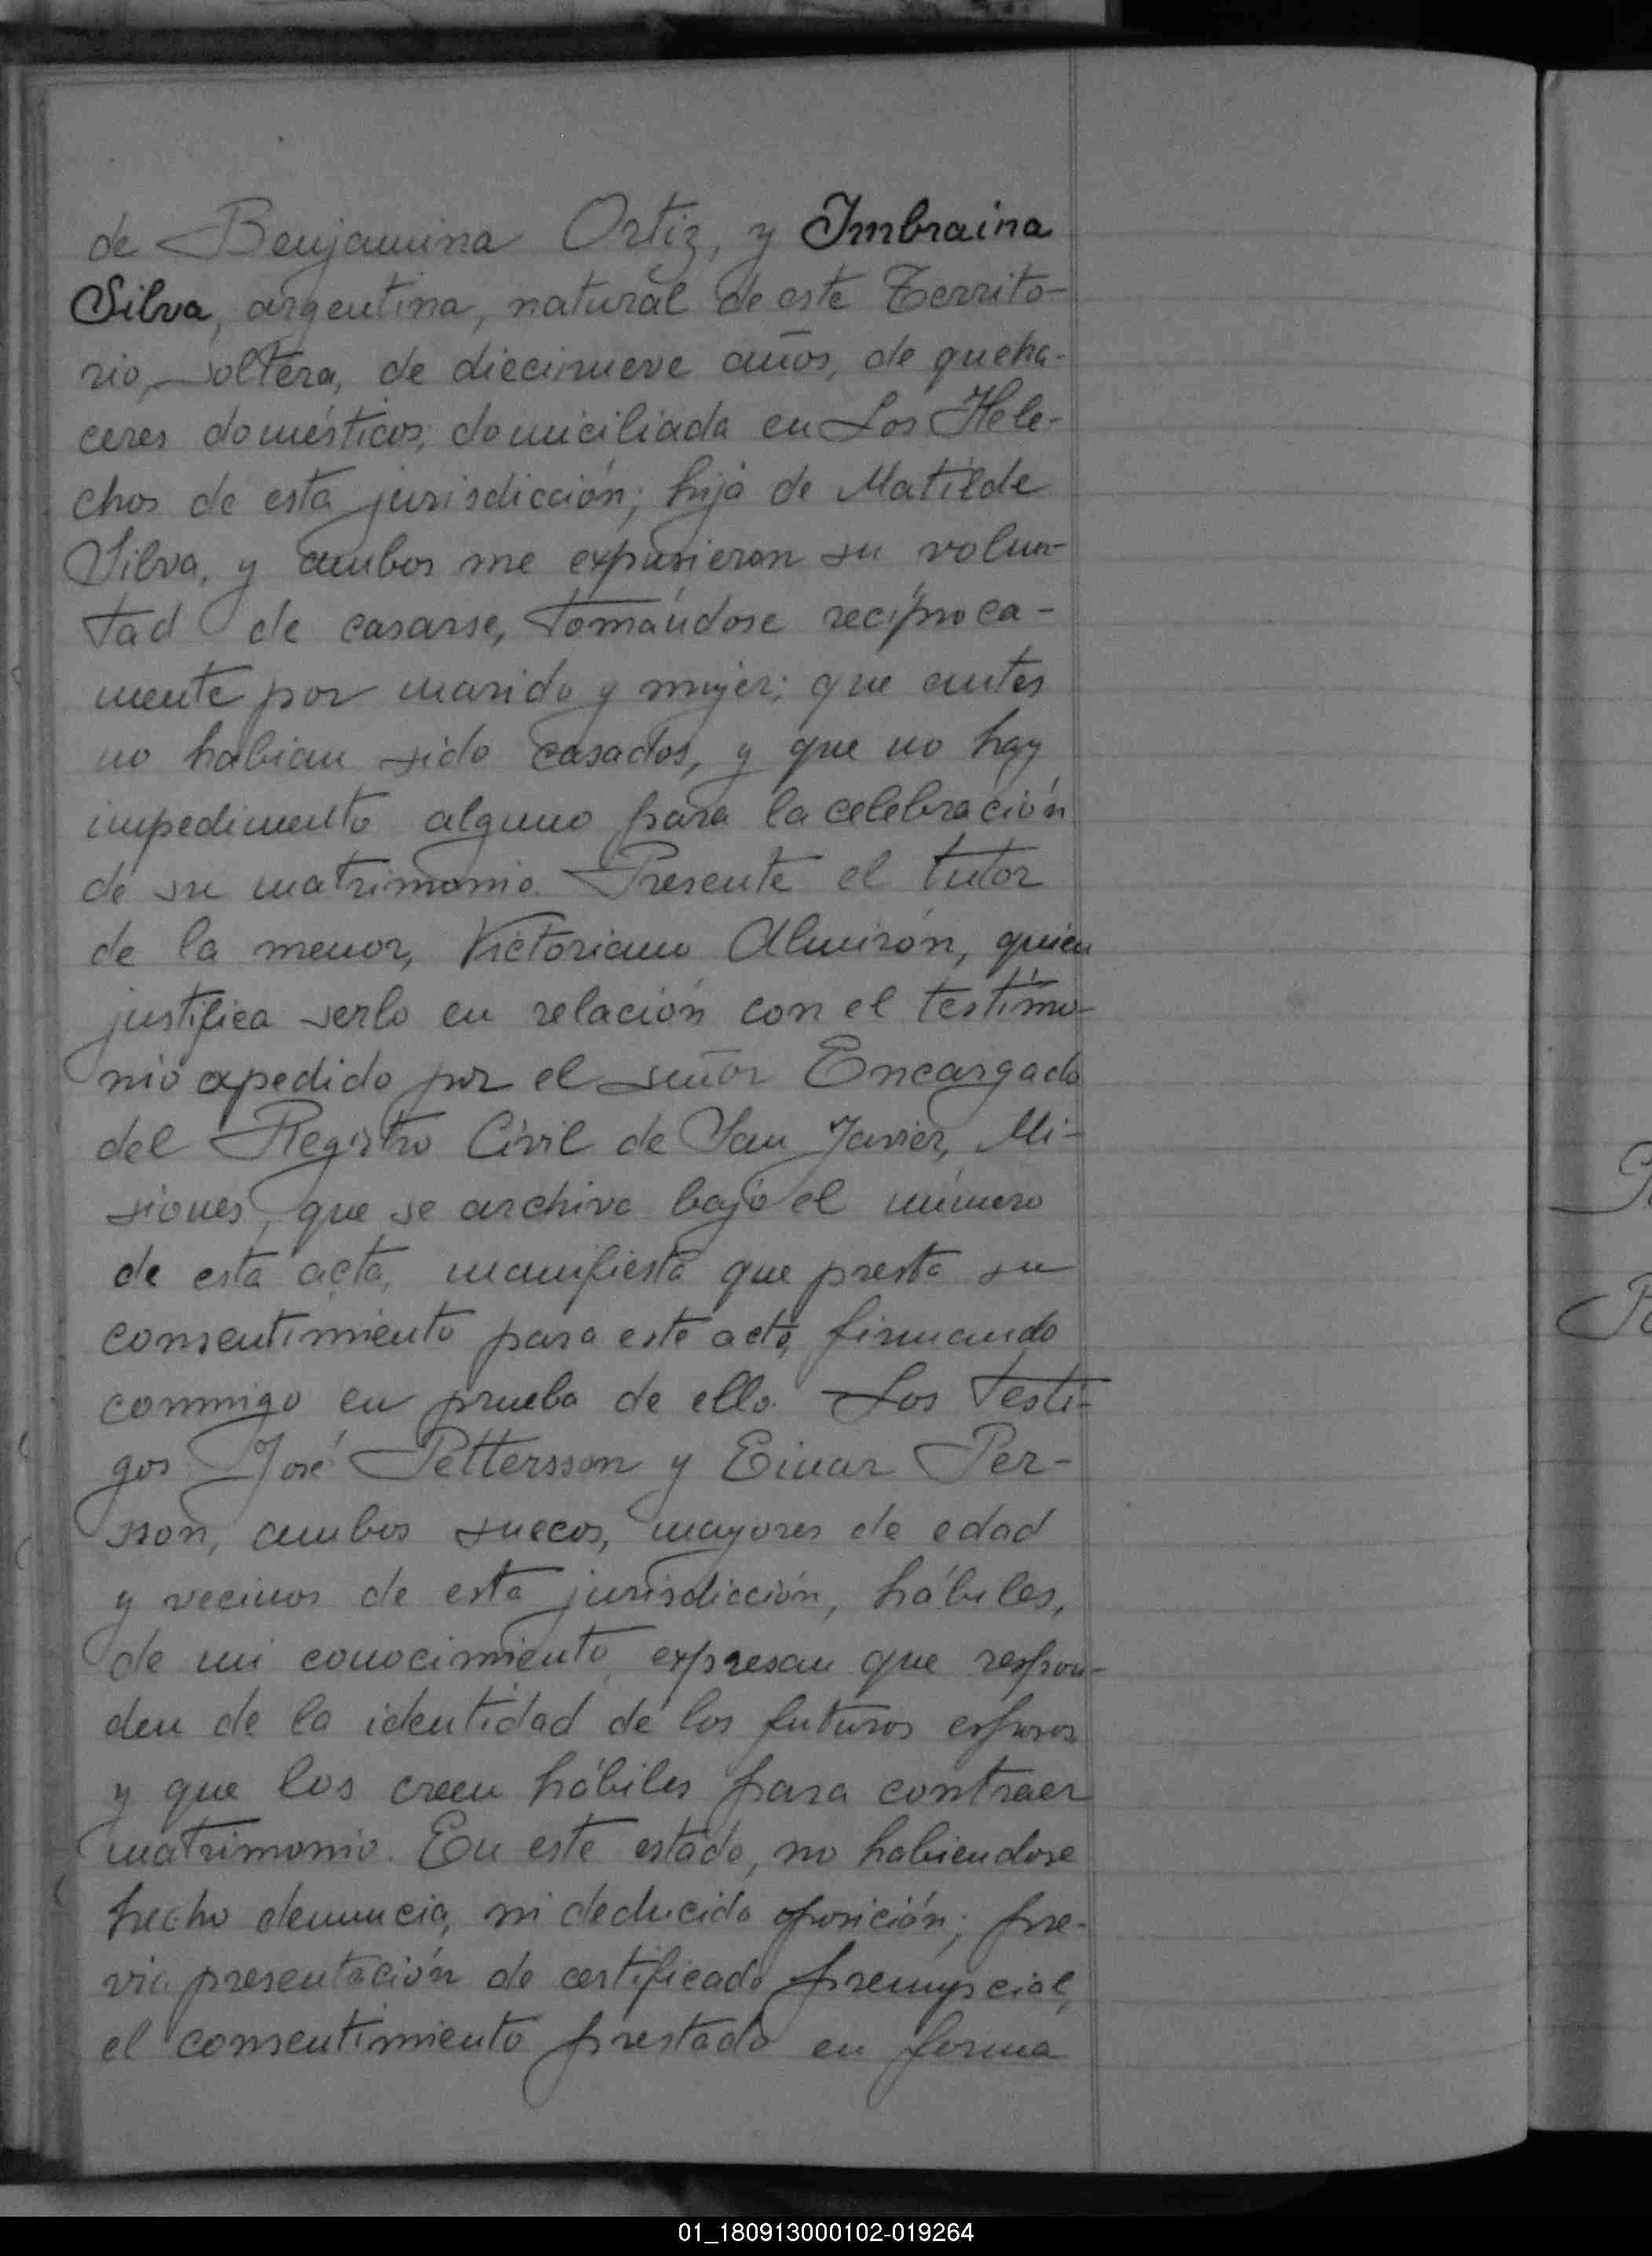 de Benjamina Ortiz, y Imbraina
Silva, argentina, natural de este Territo-
rio, soltera, de diecinueve años, de queha-
ceres domésticos, domiciliada en Los Hele-
chos de esta jurisdicción; hija de Matilde
Silva, y ambos me expusieron su volun-
tad de casarse, tomándose recíproca-
mente por marido y mujer; que antes
no habian sido casados, y que no hay
impedimento alguno para la celebración
de su matrimonio. Presente el tutor
de la menor, Victoriano Almirón, quien
justifica serlo en relación con el testimo-
nio expedido por el señor Encargado
del Registro Civil de San Javier, Mi-
siones, que se archiva bajo el número
de esta acta, manifiesta que presta su
consentimiento para este acto, firmando
conmigo en prueba de ello. Los testi-
gos José Pettersson y Einar Per-
sson, ambos suecos, mayores de edad
y vecinos de esta jurisdicción, hábiles,
de mi conocimiento, expresan que respon-
den de la identidad de los futuros esposos
y que los creen hábiles para contraer
matrimonio. En este estado, no habiendose
hecho denuncia, ni deducido oposición; pre-
via presentación de certificado prenupcial,
el consentimiento prestado en forma
01_180913000102-019264